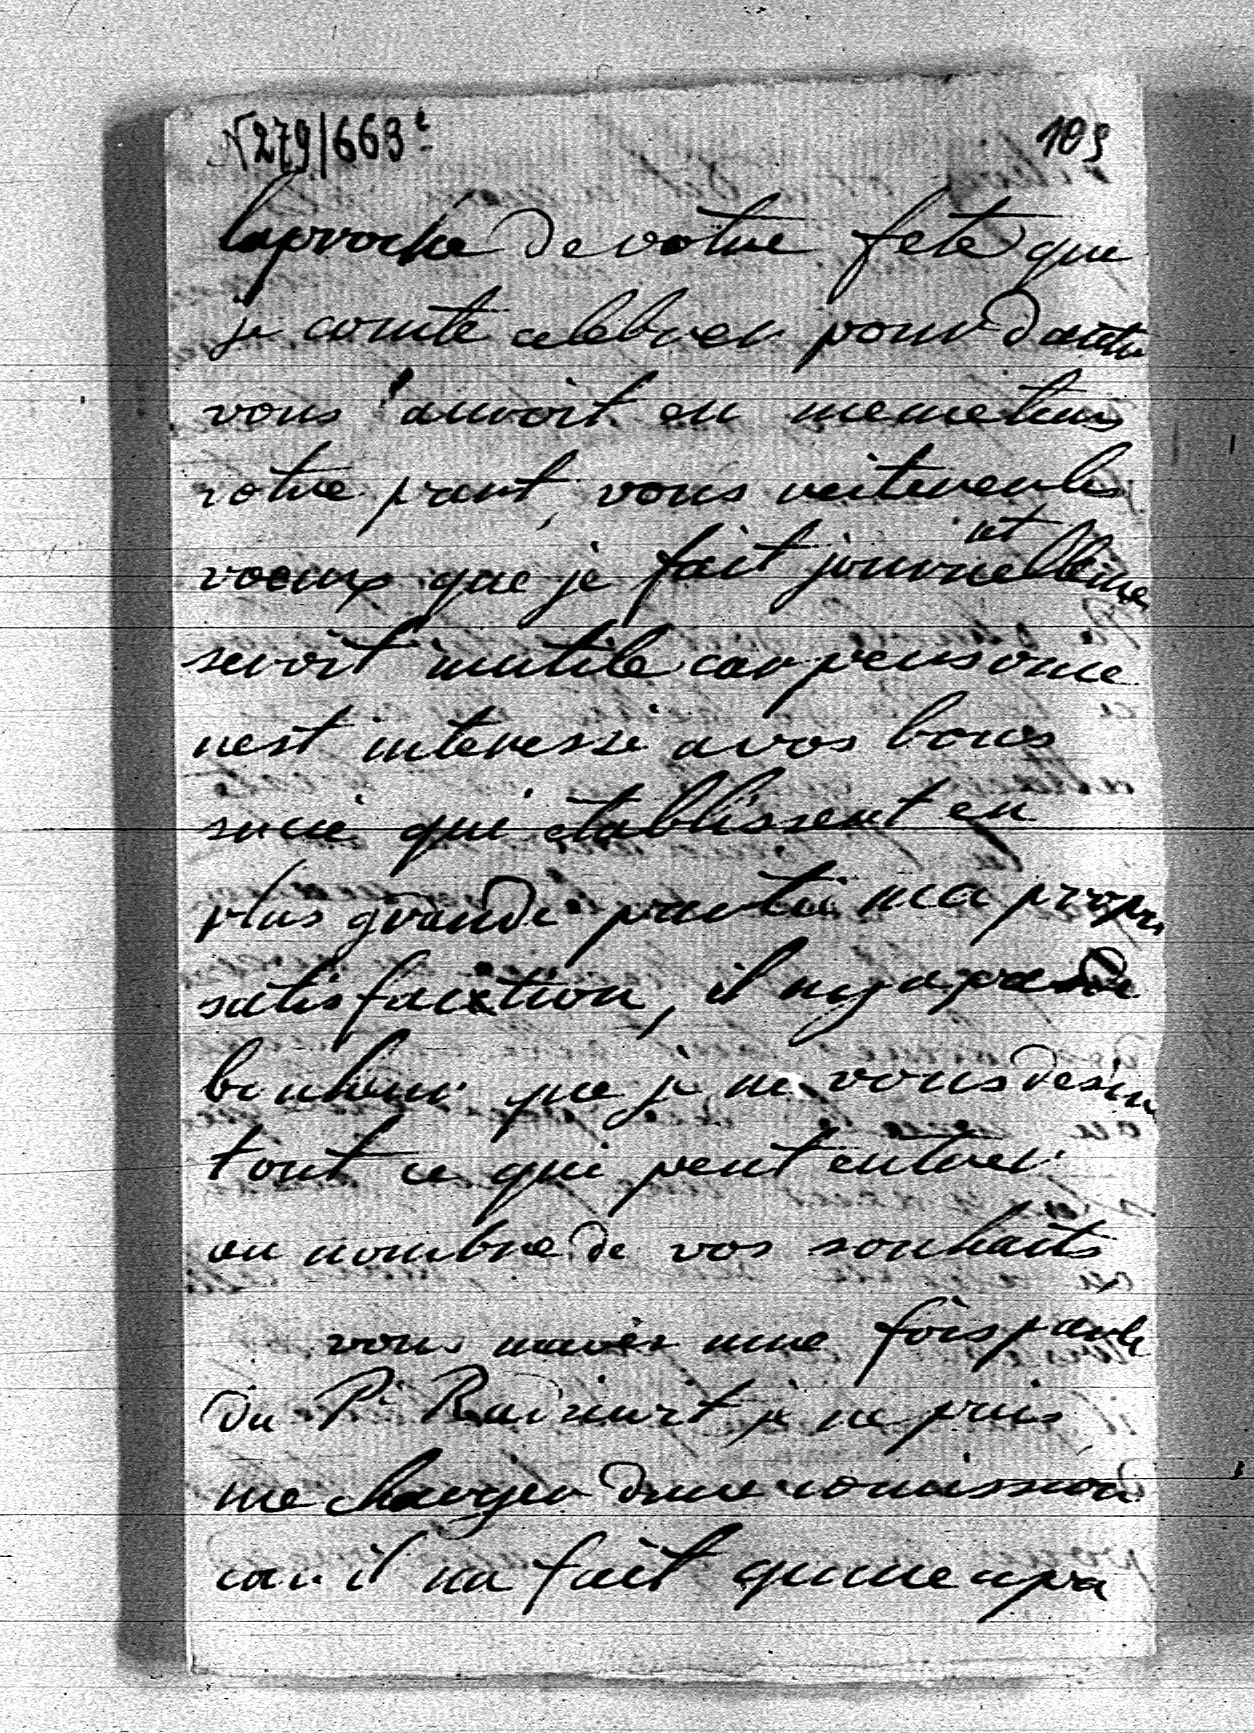 N279/663ᵉ 109
laproche de votre fete que
je comte celebrer pour dautre
vous auroit en meme tems
votre part, vous reiterer les
voeux que je fait journellemet
seroit inutile car persone
nest interessé a vos bons
succé qui etablissent en
plus grande partie ma propre
satisfaction, il ny a pas de
bonheur que je ne vous desire
tout ce qui peut entrer
au nombre de vos souhaits
vous mavés une fois parlé
du Pᵉ je ne puis
me charger dune comission
car il ma fait qu